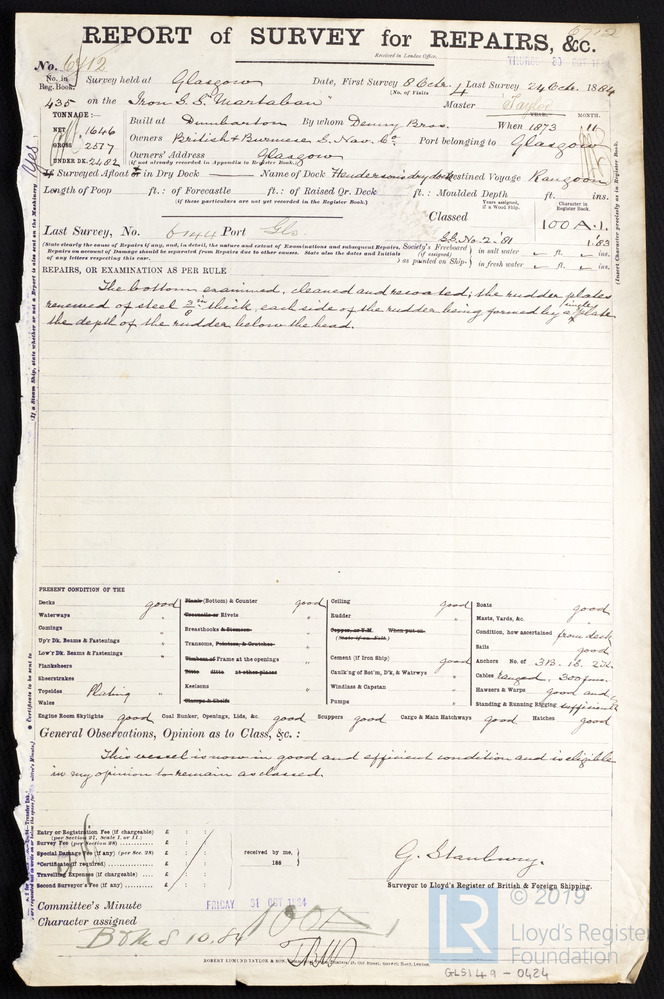 6712
REPORT of SURVEY for REPAIRS, &c.
Received in London Office,
No. 6712
THURSDAY 30 OCT 1884
No. in Reg. Book.
Survey held at Glasgow Date, First Survey 8 Octr. Last Survey 24 Octr. 1884
(No. of Visits 4
435 on the Iron S.S. "Martaban" Master Taylor
TONNAGE:—
YEAR. MONTH.
NET 1646 Built at Dumbarton By whom Denny Bros. When 1873 11
GROSS 2517 Owners British & Burmese S. Nav. Co. Port belonging to Glasgow
UNDER DK. 2482 Owners' Address Glasgow
(if not already recorded in Appendix to Register Book.)
If Surveyed Afloat or in Dry Dock Name of Dock Henderson's dry dock Destined Voyage Rangoon
Length of Poop ft.: of Forecastle ft.: of Raised Qr. Deck ft.: Moulded Depth ft. ins.
(if these particulars are not yet recorded in the Register Book.)
Years assigned, if a Wood Ship. Character in Register Book.
Classed 100 A.1.
Last Survey, No. 6144 Port Gls. S.S. No. 2.'81 1'83
(State clearly the cause of Repairs if any, and, in detail, the nature and extent of Examinations and subsequent Repairs.
Repairs on account of Damage should be separated from Repairs due to other causes. State also the dates and Initials
of any letters respecting this case.
Society's Freeboard (if assigned) as painted on Ship- in salt water ft. ins.
in fresh water ft. ins.
REPAIRS, OR EXAMINATION AS PER RULE
The bottom examined, cleaned and recoated; the rudder plates
renewed of steel 3/8 in thick, each side of the rudder being formed by a single plate
the depth of the rudder below the head.
PRESENT CONDITION OF THE
Decks good
Waterways "
Comings "
Up'r Dk. Beams & Fastenings "
Low'r Dk. Beams & Fastenings "
Planksheers
Sheerstrakes
Topsides Plating "
Wales
Plank (Bottom) & Counter good
Treenails or Rivets "
Breasthooks & Stemson "
Transoms, Pointers, & Crutches "
Timbers or Frame at the openings "
Ditto ditto at other places
Keelsons "
Clamps & Shelfs
Ceiling good
Rudder "
Copper, or Y.M. When put on.
(State if on Felt.)
Cement (if Iron Ship) good
Caulk'ng of Bot'm, D'k, & Watrwys "
Windlass & Capstan "
Pumps "
Boats good
Masts, Yards, &c. good
Condition, how ascertained from deck
Sails good
Anchors No. of 3B. 1S. 2K.
Cables ranged, 300 fms.
Hawsers & Warps good and
Standing & Running Rigging sufficient
Engine Room Skylights good Coal Bunker, Openings, Lids, &c. good Scuppers good Cargo & Main Hatchways good Hatches good
General Observations, Opinion as to Class, &c.:
This vessel is now in good and efficient condition and is eligible
in my opinion to remain as classed.
Entry or Registration Fee (if chargeable) £ : :
(per Section 27, Scale I. or II.)
Survey Fee (per Section 28) £ : :
Special Damage Fee (if any) (per Sec. 28) £ : :
*Certificate (if required) £ : :
Travelling Expenses (if chargeable) £ : :
Second Surveyor's Fee (if any) £ : :
received by me,
188
G. Stanbury.
Surveyor to Lloyd's Register of British & Foreign Shipping.
Committee's Minute FRIDAY 31 OCT 1884
Character assigned 100A1
B&MS 10.84
ROBERT EDMUND TAYLOR & SON, Printers, 19, Old Street, Goswell Road, London.
(If a Steam Ship, state whether or not a Report is also sent on the Machinery Yes
(Insert Character precisely as in Register Book.
* Certificate to be sent to
© 2019
LR
Lloyd's Register
Foundation
GLS149-0424